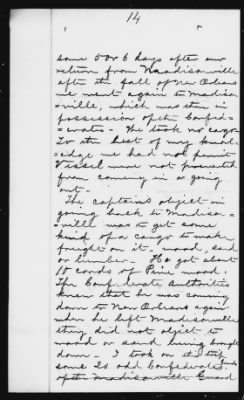 14
some 5 or 6 days after our
return from Maadisonville
after the fall of New Orleans
we went again to Madison
=ville, which was then in
possession of the Confed=
=erates - We took no cargo
To the best of my knowl=
=edge we had not permit
Vessel were not prevented
from coming in or going
out -
The captain's object in
going back to Madison=
=ville was to get some
kind of a cargo to make
freight on it - wood, sand
or lumber. He got about
10 cords of Pine wood.
The Confederate authorities
knew that he was coming
down to New Orleans again
when he left Madisonville
they did not object to
wood or sand being brought
down - I took on it trip
some 20 odd Confederates
of the Madisonville Guard